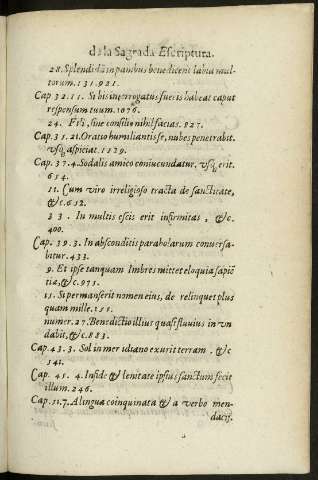 de la Sagrada Escriptura.
28. Splendidũ in panibus benedicent labia mul-
torum. 131. 921.
Cap. 32. 11. Si bis interrogatus fueris habeat caput
responsum tuum. 1076.
24. Fili, sine consilio nihil facias. 927.
Cap. 35. 21. Oratio humiliantis se, nubes penetrabit.
usq; aspiciat. 1129.
Cap. 37. 4. Sodalis amico coniucundatur. usq; erit.
654.
11. Cum viro irreligioso tracta de sanctitate,
&c. 612.
33. In multis escis erit infirmitas, &c.
400.
Cap. 39. 3. In absconditis parabolarum conuersa-
bitur. 433.
9. Et ipse tanquam Imbres mittet eloquia sapiẽ
tiæ, &c. 971.
15. Si permanserit nomen eius, de relinquet plus
quam mille. 155.
numer. 27. Benedictio illius quasi fluuius inun
dabit, &c. 883.
Cap. 43. 3. Sol in meridiano exurit terram. &c
541.
Cap. 45. 4. In fide & lenitate ipsius sanctum fecit
illum. 246.
Cap. 51. 7. A lingua coinquinata & a verbo men-
dacij.